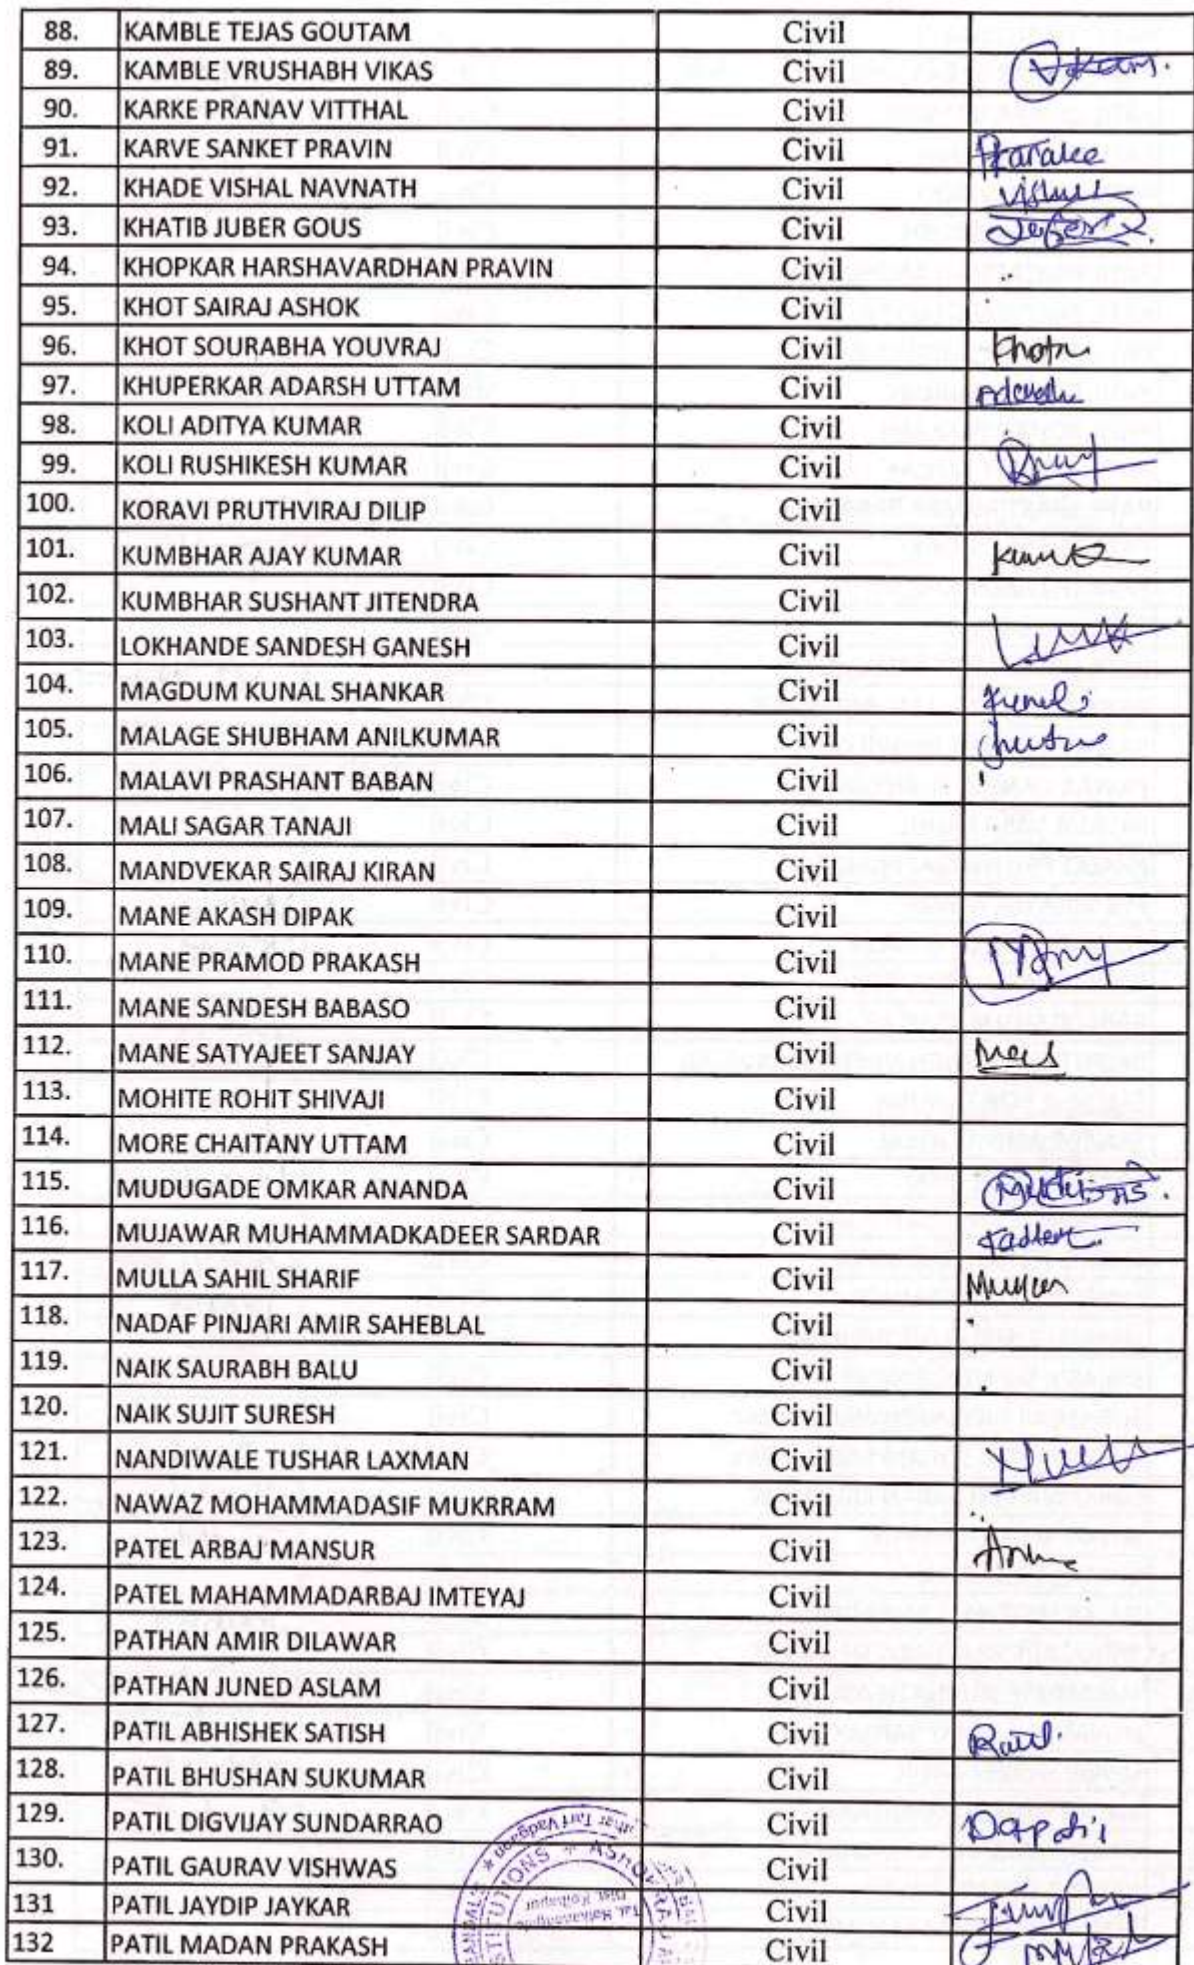 88. KAMBLE TEJAS GOUTAM Civil
89. KAMBLE VRUSHABH VIKAS Civil
90. KARKE PRANAV VITTHAL Civil
91. KARVE SANKET PRAVIN Civil
92. KHADE VISHAL NAVNATH Civil
93. KHATIB JUBER GOUS Civil
94. KHOPKAR HARSHAVARDHAN PRAVIN Civil
95. KHOT SAIRAJ ASHOK Civil
96. KHOT SOURABHA YOUVRAJ Civil
97. KHUPERKAR ADARSH UTTAM Civil
98. KOLI ADITYA KUMAR Civil
99. KOLI RUSHIKESH KUMAR Civil
100. KORAVI PRUTHVIRAJ DILIP Civil
101. KUMBHAR AJAY KUMAR Civil
102. KUMBHAR SUSHANT JITENDRA Civil
103. LOKHANDE SANDESH GANESH Civil
104. MAGDUM KUNAL SHANKAR Civil
105. MALAGE SHUBHAM ANILKUMAR Civil
106. MALAVI PRASHANT BABAN Civil
107. MALI SAGAR TANAJI Civil
108. MANDVEKAR SAIRAJ KIRAN Civil
109. MANE AKASH DIPAK Civil
110. MANE PRAMOD PRAKASH Civil
111. MANE SANDESH BABASO Civil
112. MANE SATYAJEET SANJAY Civil
113. MOHITE ROHIT SHIVAJI Civil
114. MORE CHAITANY UTTAM Civil
115. MUDUGADE OMKAR ANANDA Civil
116. MUJAWAR MUHAMMADKADEER SARDAR Civil
117. MULLA SAHIL SHARIF Civil
118. NADAF PINJARI AMIR SAHEBLAL Civil
119. NAIK SAURABH BALU Civil
120. NAIK SUJIT SURESH Civil
121. NANDIWALE TUSHAR LAXMAN Civil
122. NAWAZ MOHAMMADASIF MUKRRAM Civil
123. PATEL ARBAJ MANSUR Civil
124. PATEL MAHAMMADARBAJ IMTEYAJ Civil
125. PATHAN AMIR DILAWAR Civil
126. PATHAN JUNED ASLAM Civil
127. PATIL ABHISHEK SATISH Civil
128. PATIL BHUSHAN SUKUMAR Civil
129. PATIL DIGVIJAY SUNDARRAO Civil
130. PATIL GAURAV VISHWAS Civil
131 PATIL JAYDIP JAYKAR Civil
132 PATIL MADAN PRAKASH Civil